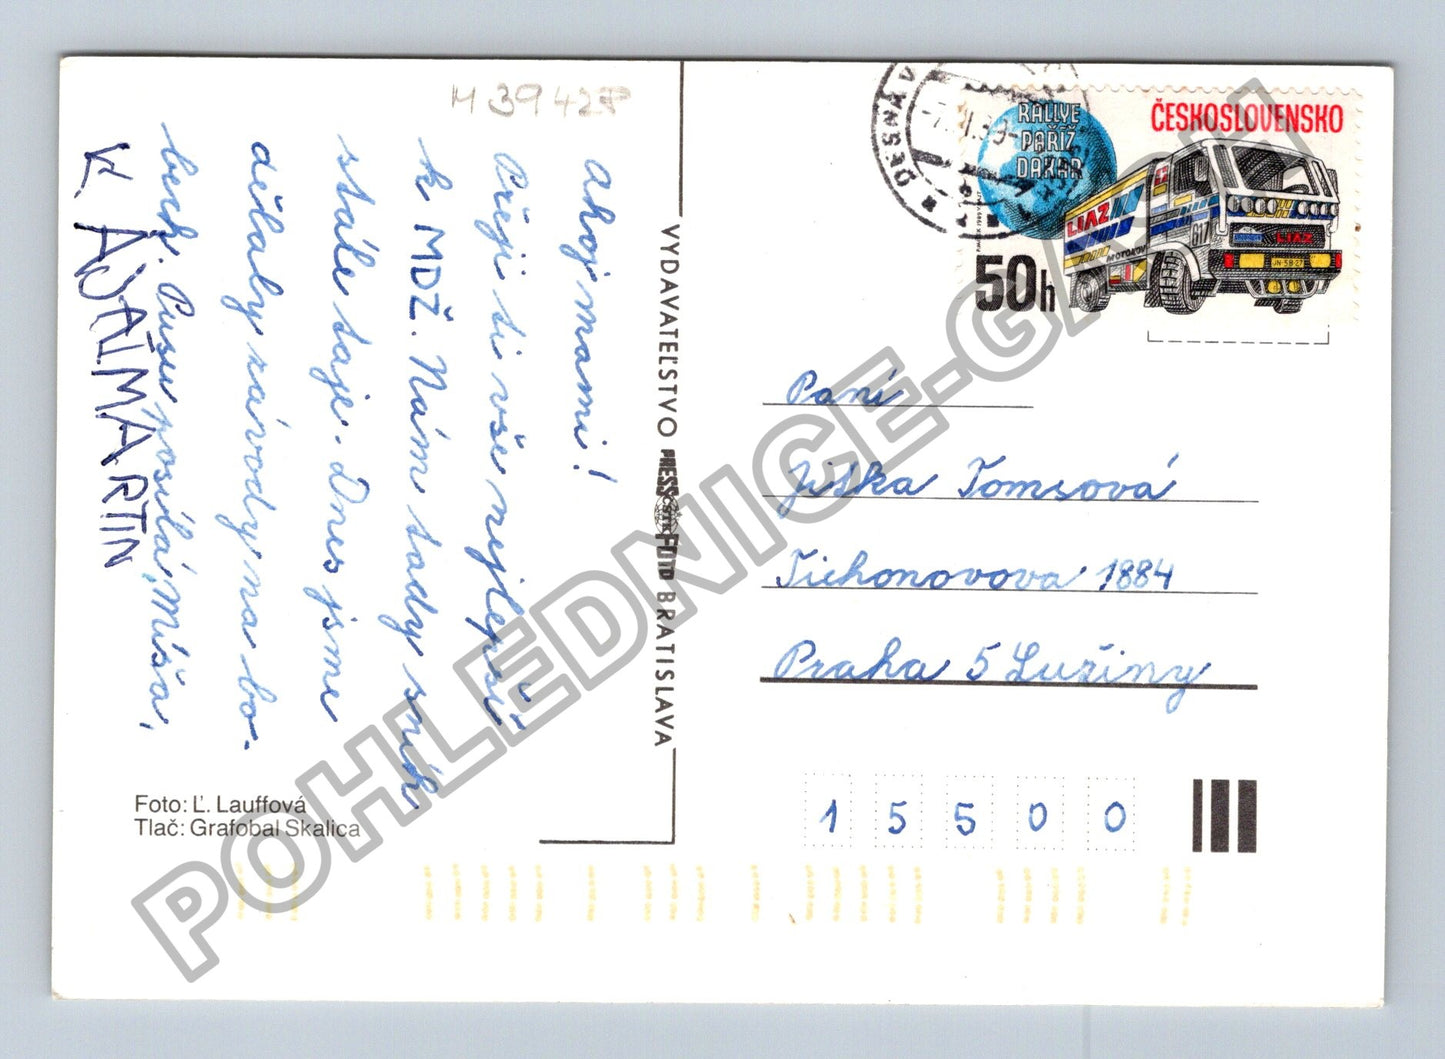 M 39 428
Ahoj mami!
Přeji ti vše nejlepší
k MDŽ. Nám tady sníh
stále taje. Dnes jsme
dělaly závody na bo-
bech. Pusu posílá, Míša,
K. A
MARTIN
VYDAVATEĽSTVO PRESSFOTO BRATISLAVA
ČSTK
Foto: Ľ. Lauffová
Tlač: Grafobal Skalica
DESNÁ V
RALLYE
PAŘÍŽ
DAKAR
ČESKOSLOVENSKO
LIAZ
MOTOKOV
617
LIAZ
JN-58-27
50h
Paní
Jitka Tomsová
Tichonovova 1884
Praha 5 Lužiny
15500
POHLEDNICE-GARAZ